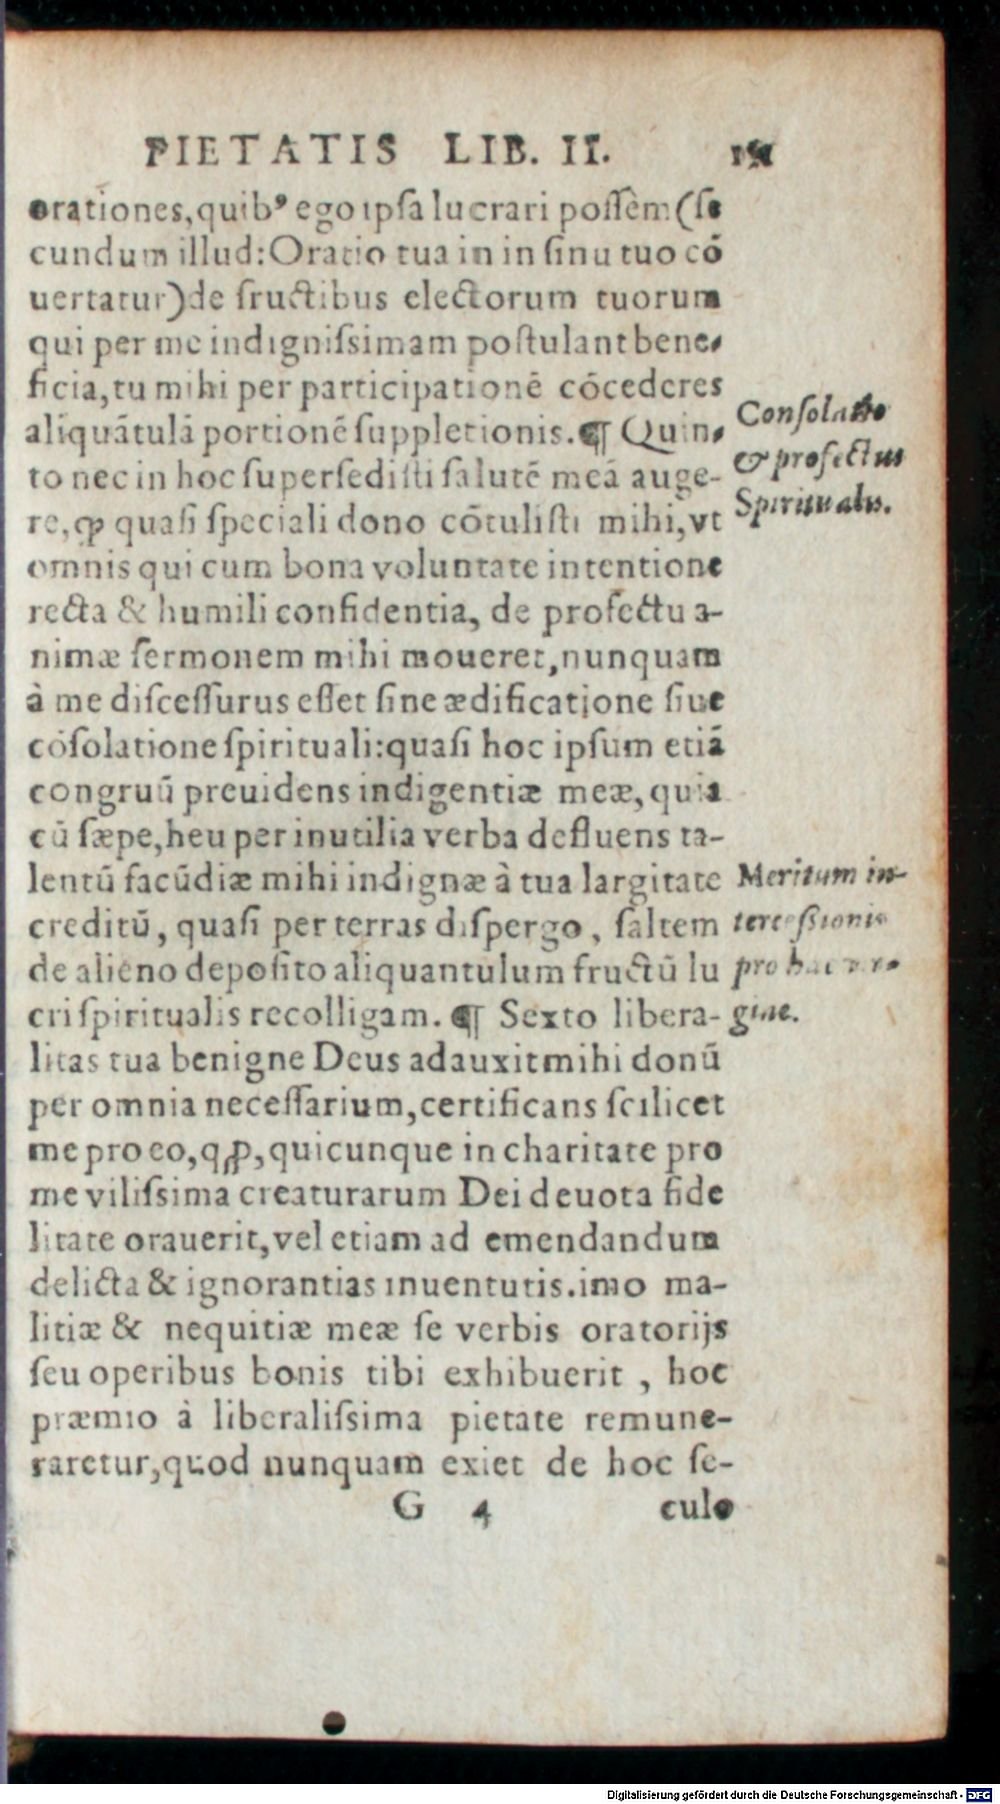 PIETATIS LIB. II.
orationes, quibꝰ ego ipſa lucrari poſſem (ſe
cundum illud: Oratio tua in in ſinu tuo cō
uertatur) de fructibus electorum tuorum
qui per me indigniſsimam poſtulant bene-
ficia, tu mihi per participationē cōcederes
aliquātulā portionē ſuppletionis. ¶ Quin-
to nec in hoc ſuperſediſti ſalutē meā auge-
re, ꝙ quaſi ſpeciali dono cōtuliſti mihi, vt
omnis qui cum bona voluntate intentione
recta & humili confidentia, de profectu a-
nimæ ſermonem mihi moueret, nunquam
à me diſceſſurus eſſet ſine ædificatione ſiue
cōſolatione ſpirituali: quaſi hoc ipſum etiā
congruū preuidens indigentiæ meæ, quia
cū ſæpe, heu per inutilia verba defluens ta-
lentū facūdiæ mihi indignæ à tua largitate
creditū, quaſi per terras diſpergo, ſaltem
de alieno depoſito aliquantulum fructū lu
cri ſpiritualis recolligam. ¶ Sexto libera-
litas tua benigne Deus adauxit mihi donū
per omnia neceſſarium, certificans ſcilicet
me pro eo, qꝙ, quicunque in charitate pro
me viliſsima creaturarum Dei deuota fide
litate orauerit, vel etiam ad emendandum
delicta & ignorantias inuentutis. imo ma-
litiæ & nequitiæ meæ ſe verbis oratorijs
ſeu operibus bonis tibi exhibuerit, hoc
præmio à liberaliſsima pietate remune-
raretur, quod nunquam exiet de hoc ſe-
G 4 culo
Conſolatio
& profectus
Spiritualis.
Meritum in-
terceſsionis
pro hac
gine.
Digitalisierung gefördert durch die Deutsche Forschungsgemeinschaft - DFG